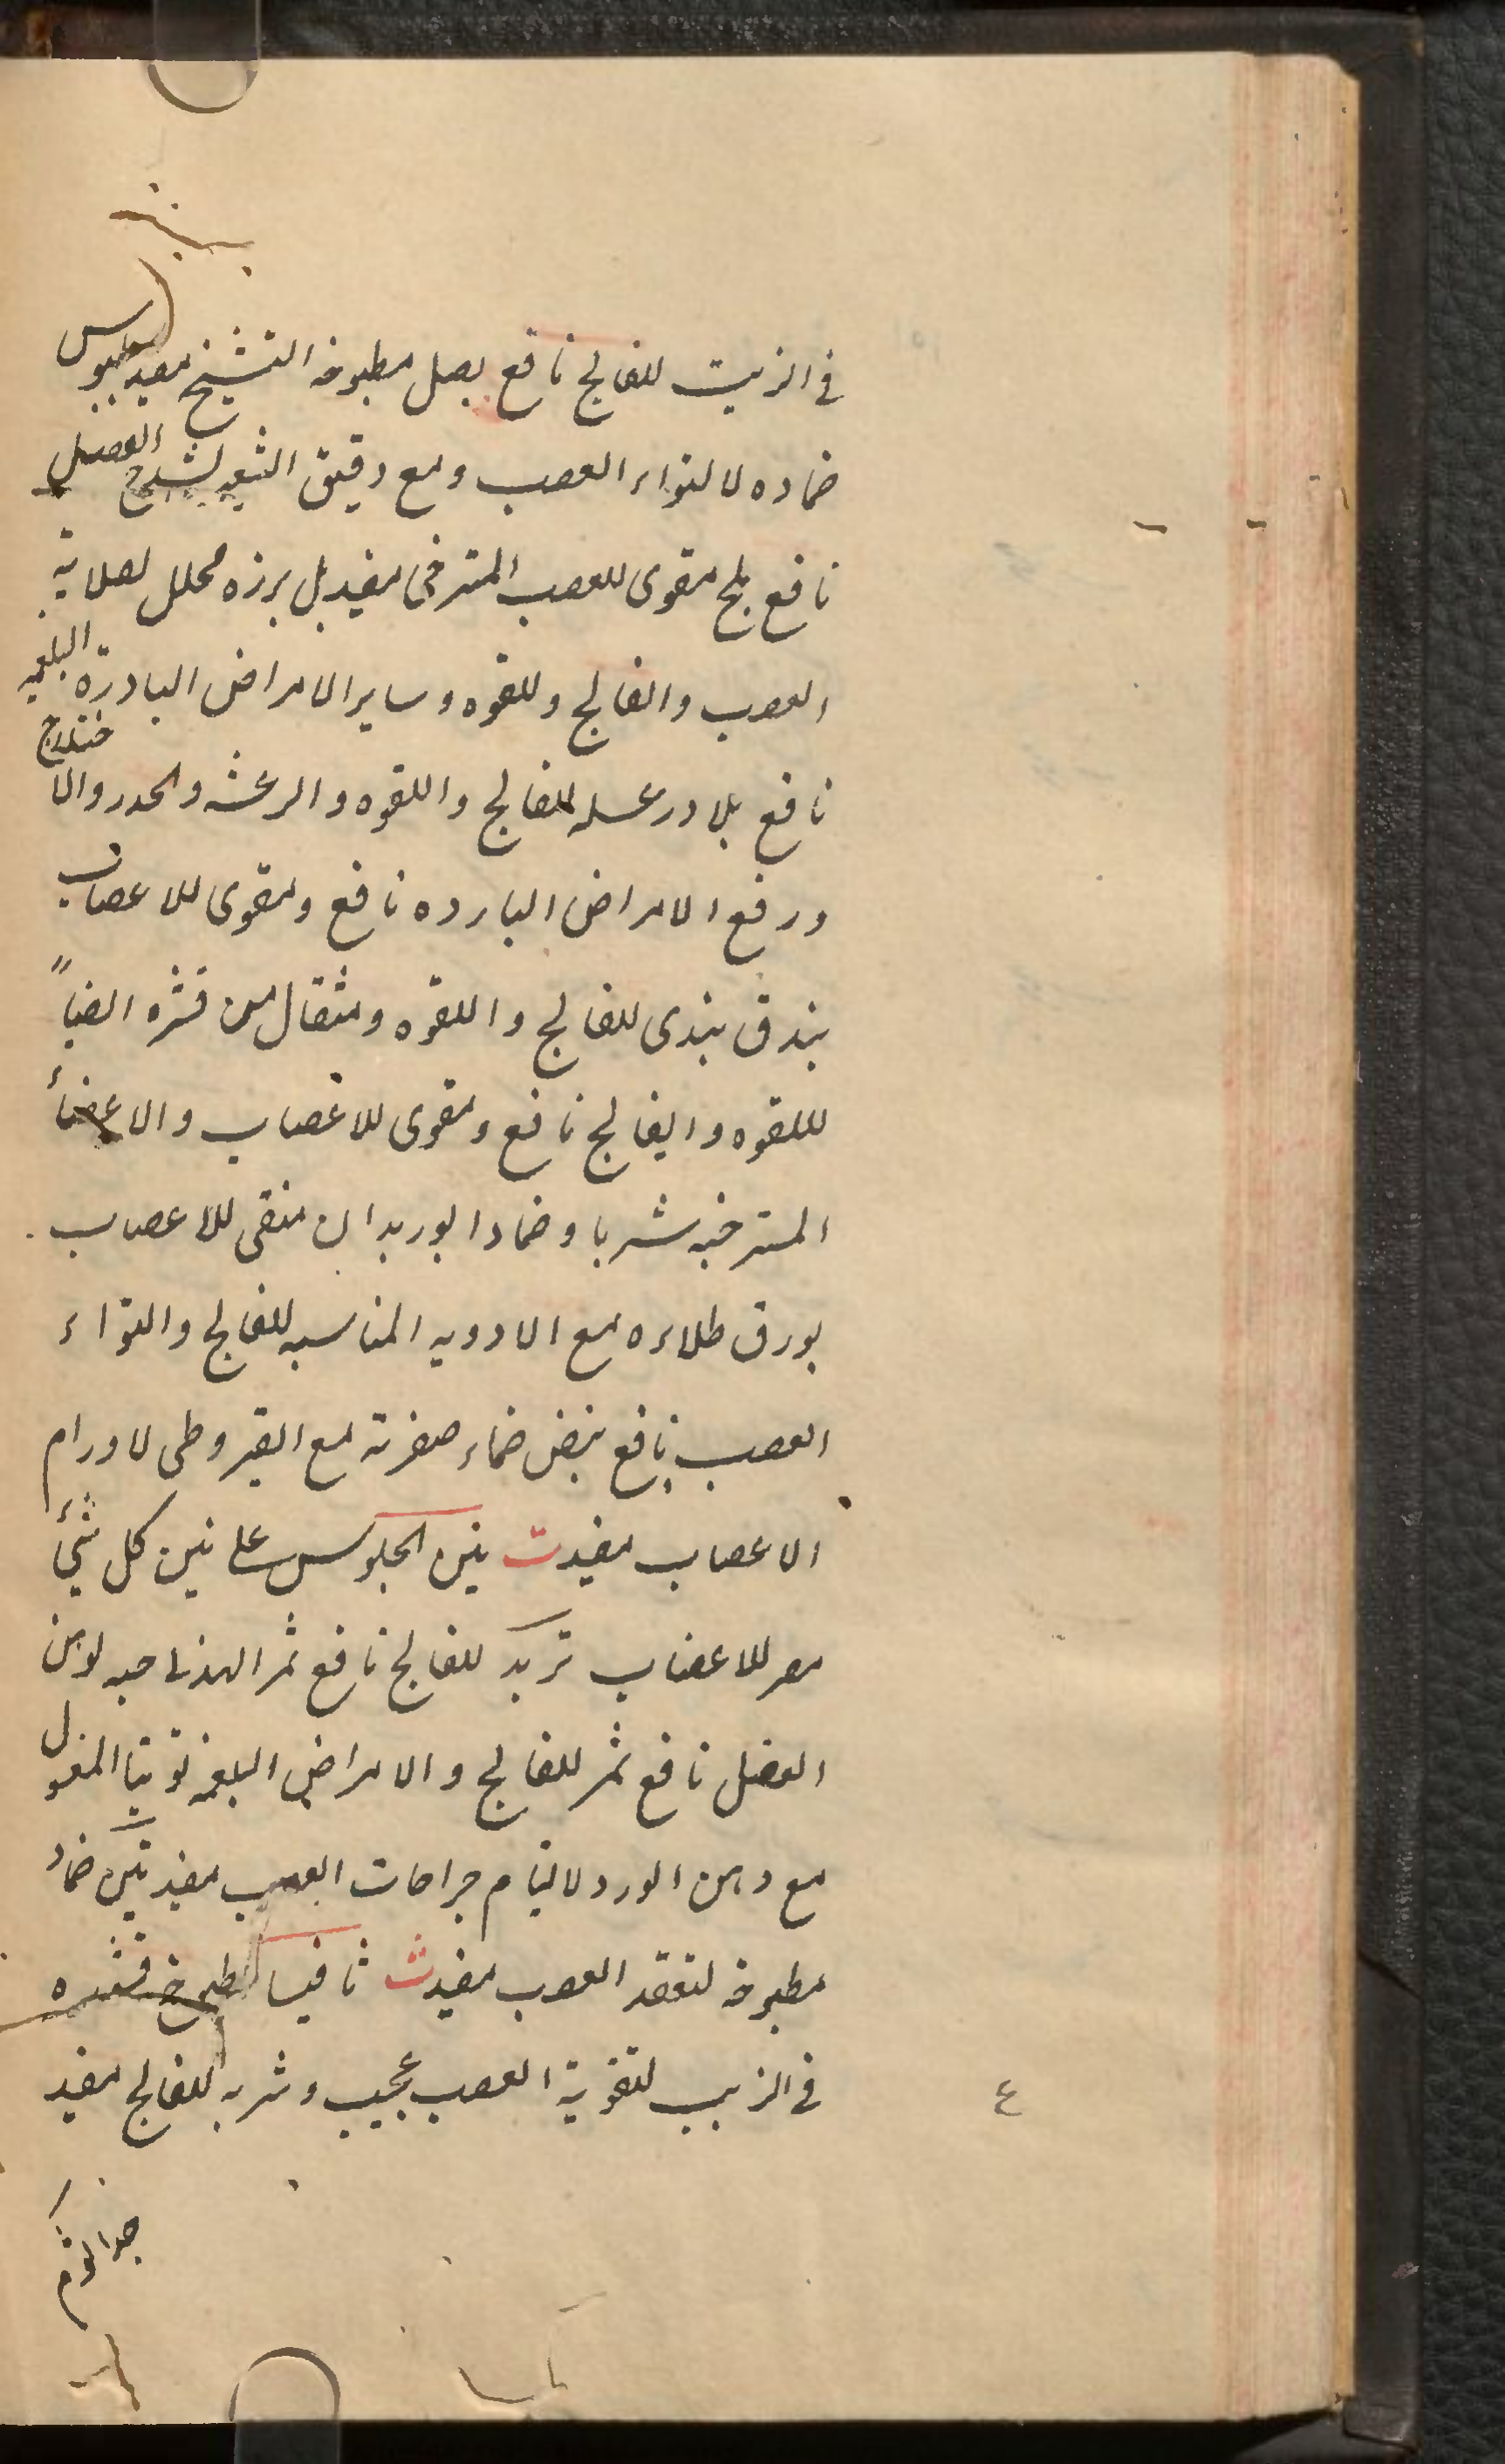 في الزيت للفالج نافع بصل مطبوخه التشنج مفيد بلبوس
ضماده لالتواء العصب ومع دقيق الشعير لشدخ العضل
نافع بلح مقوى للعصب المسترخى مفيد بل برزه محلل لصلابة
العصب والفالج وللقوه وساير الامراض البادرة البلغميه
نافع بلادر عسله للفالج واللقوه والرعشه والخدر والاختلاج
ورفع الامراض البارده نافع ومقوى للاعصاب
بندق هندى للفالج واللقوه ومثقال من قشره ايضاً
لللقوه والفالج نافع ومقوى للاعصاب والاعضاء
المسترخيه شربا وضمادا بوريدان منقى للاعصاب
بورق طلاءه مع الادويه المناسبه للفالج والتواء
العصب نافع بيض ضماد صفرته مع القيروطى لاورام
الاعصاب مفيد ت تين الجلوس على تين كل شئ
مضر للاعصاب تربد للفالج نافع ثمر الهند حبه لوهن
العضل نافع تمر للفالج والامراض البلغميه توتيا المغسول
مع دهن الورد لالتيام جراحات العصب مفيد تين ضماد
مطبوخه لتعقد العصب مفيد ث ثافيسا طبخ قشره
في الزيت لتقوية العصب عجيب وشربه للفالج مفيد
٤